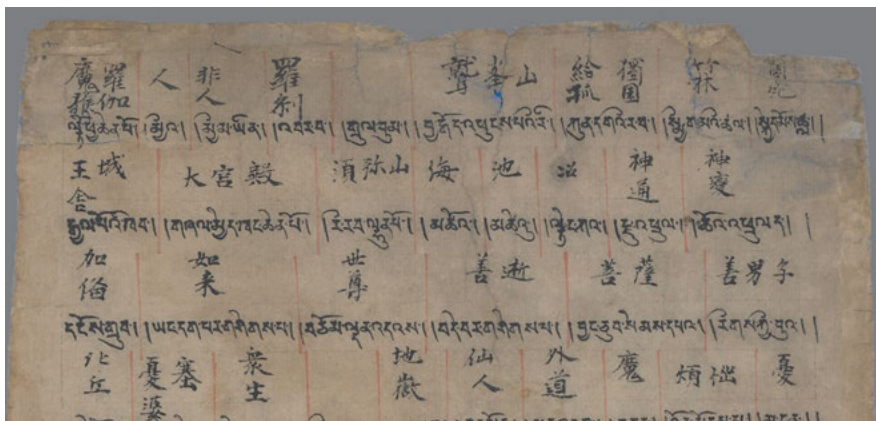 摩羅猴伽 人 非人 羅刹 鷲峯山 給孤獨園 竹林
ལྟོ་ཕྱེ་ཆེན་པོ། །མྱིའ། །མྱི་མ་ཡིན། །གྲུལ་བུམ། །བྱ་རྒོད་འཕུངས་པའི་རི། །ཀུན་དགའི་ར་བ། །སྨྱིག་མའི་ཚལ། །སྐྱེད་མོས་ཚལ། །
王舍城 大宮殿 須弥山 海 池 沼 神通 神變
རྒྱལ་པོའི་ཁབ། །གཞལ་མྱེད་ཁང་ཆེན་པོ། །རི་རབ་ལྷུན་པོ། །མཚོའ། །མཚེའུ། །ལྟེང་ཀའ། །རྫུ་འཕྲུལ། །ཆོ་འཕྲུལ་ད། །
加俻 如来 世尊 善逝 菩薩 善男子
དངོས་གྲུབ། །ཡང་དག་པར་གཤེགས་པ། །བཅོམ་ལྡན་འདས། །བདེ་བར་གཤེགས་པ། །བྱང་ཆུབ་སེམས་དཔའ། །རིགས་ཀྱི་བུའ། །
比丘 憂婆塞 衆生 地獄 仙人 外道 魔 煩惱 憂